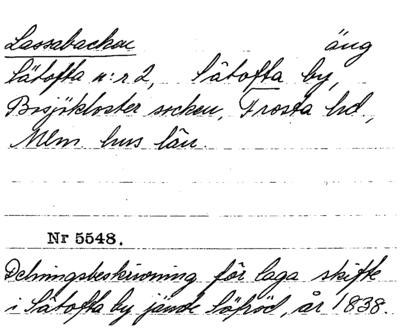 Lassabacken äng
Sätofta n:r 2, Sätofta by,
Bosjökloster socken, Frosta hd,
Mlm. hus län.
Nr 5548.
Delningsbeskrivning för laga skifte
i Sätofta by jämte Löfröd, år 1838.